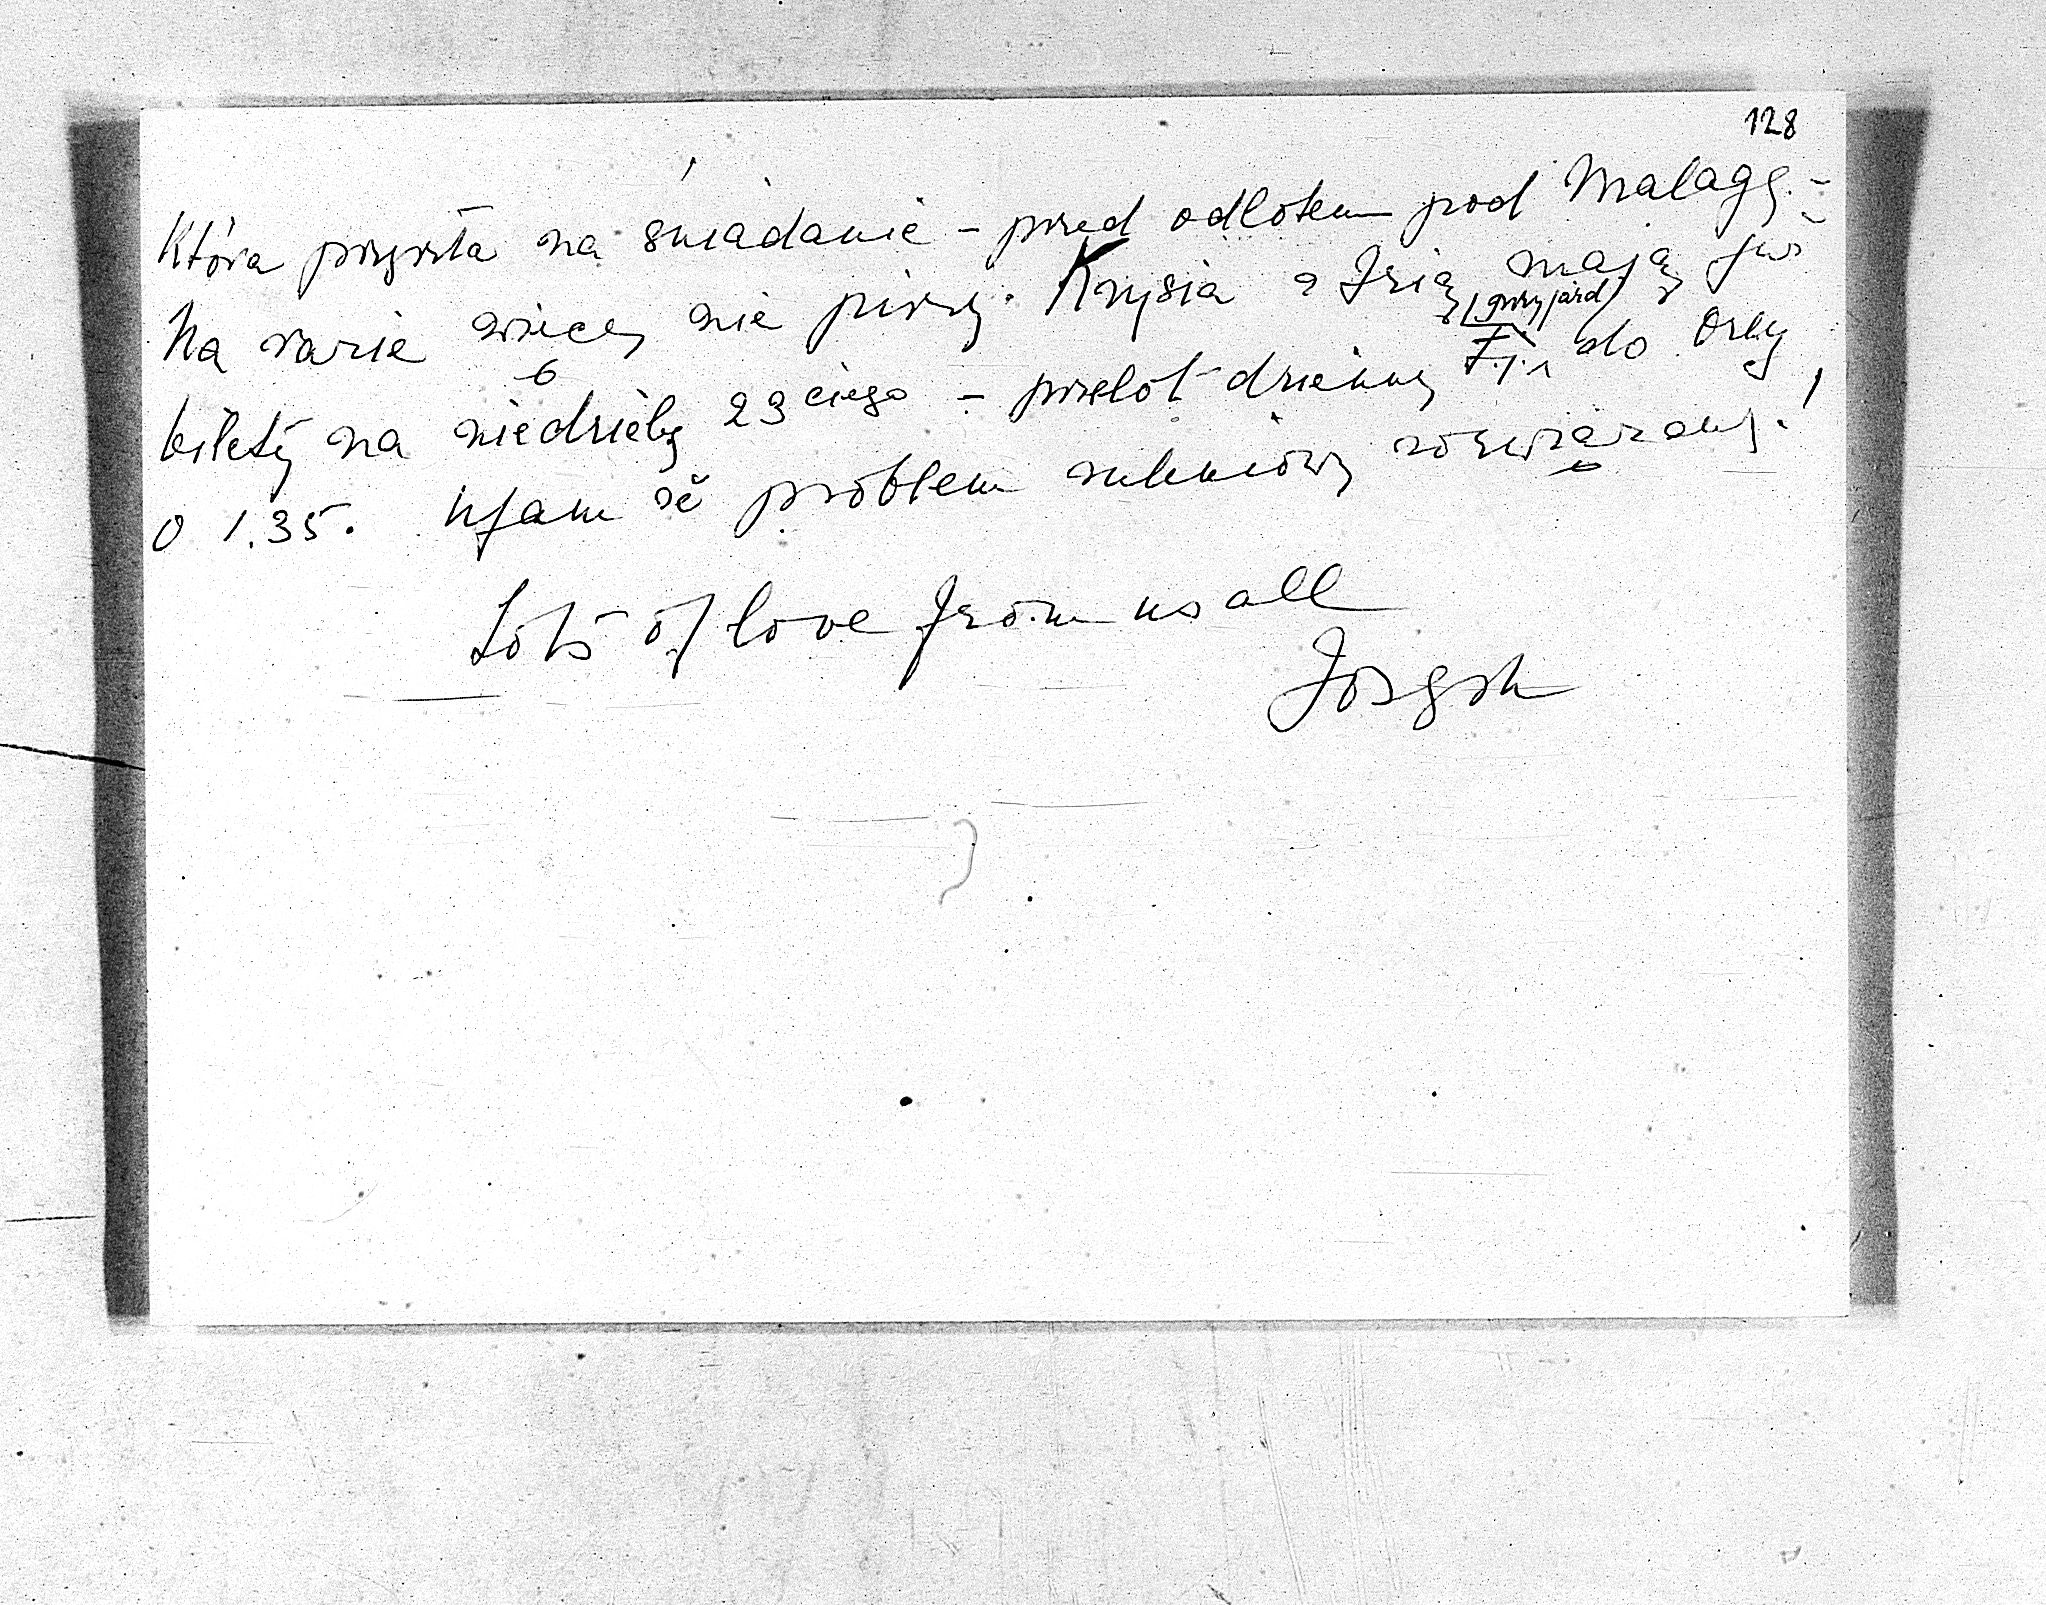 128
która przyszła na śniadanie – przed odlotem pod Malagę. –
Na razie więcej nie piszę. Krysia z Izią mają już
bilety na niedzielę 23ciego – przelot dzienny T.j. przyjazd do Orly
o 1.35. Ufam że problem sukniowy rozwiązany!
Lots of love from us all